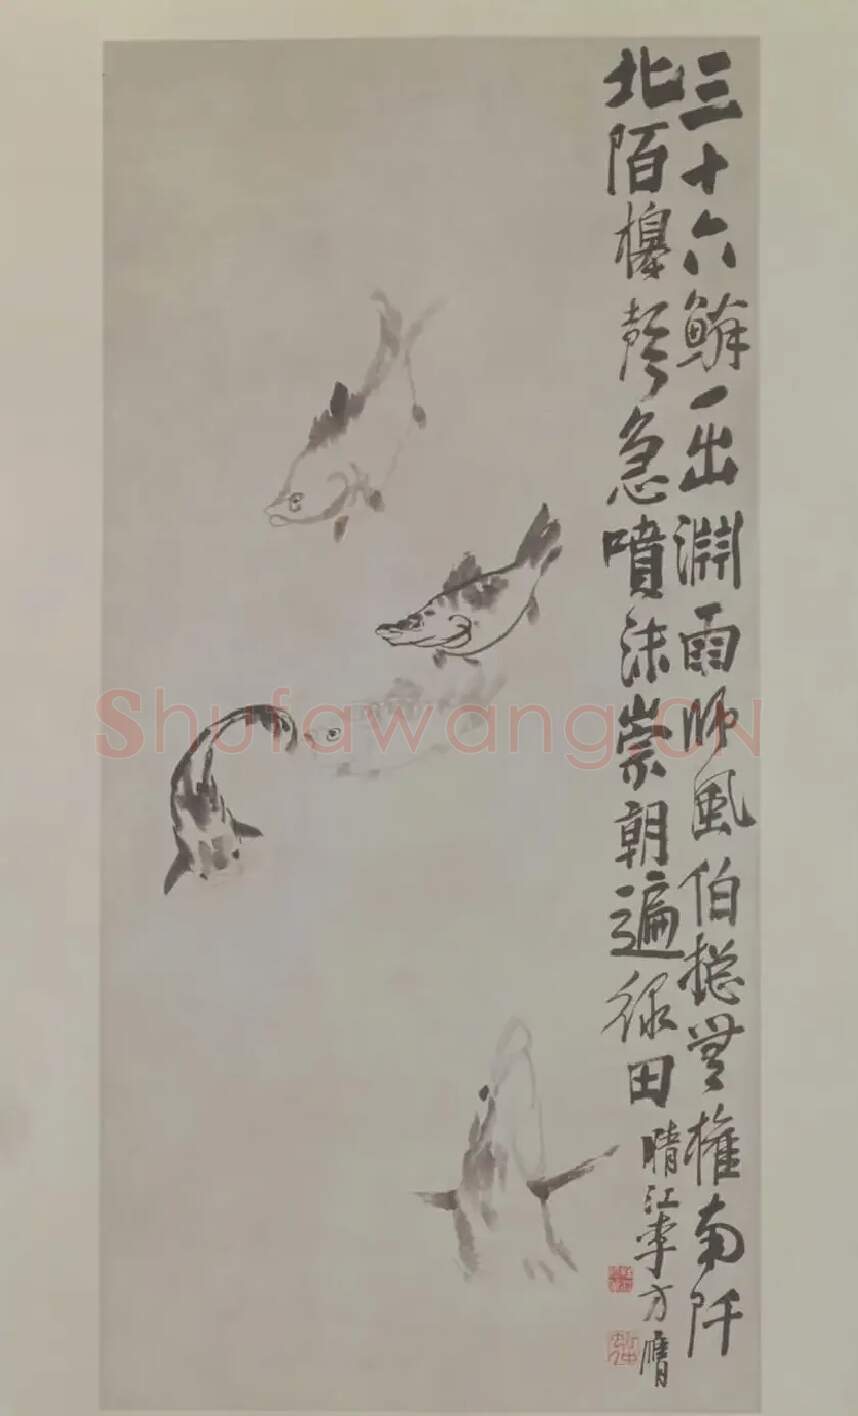 三十六鱗一出淵雨師風伯摠無權南阡
北陌槔聲急噴沫崇朝遍綠田
晴江李方膺
Shufawang.CN